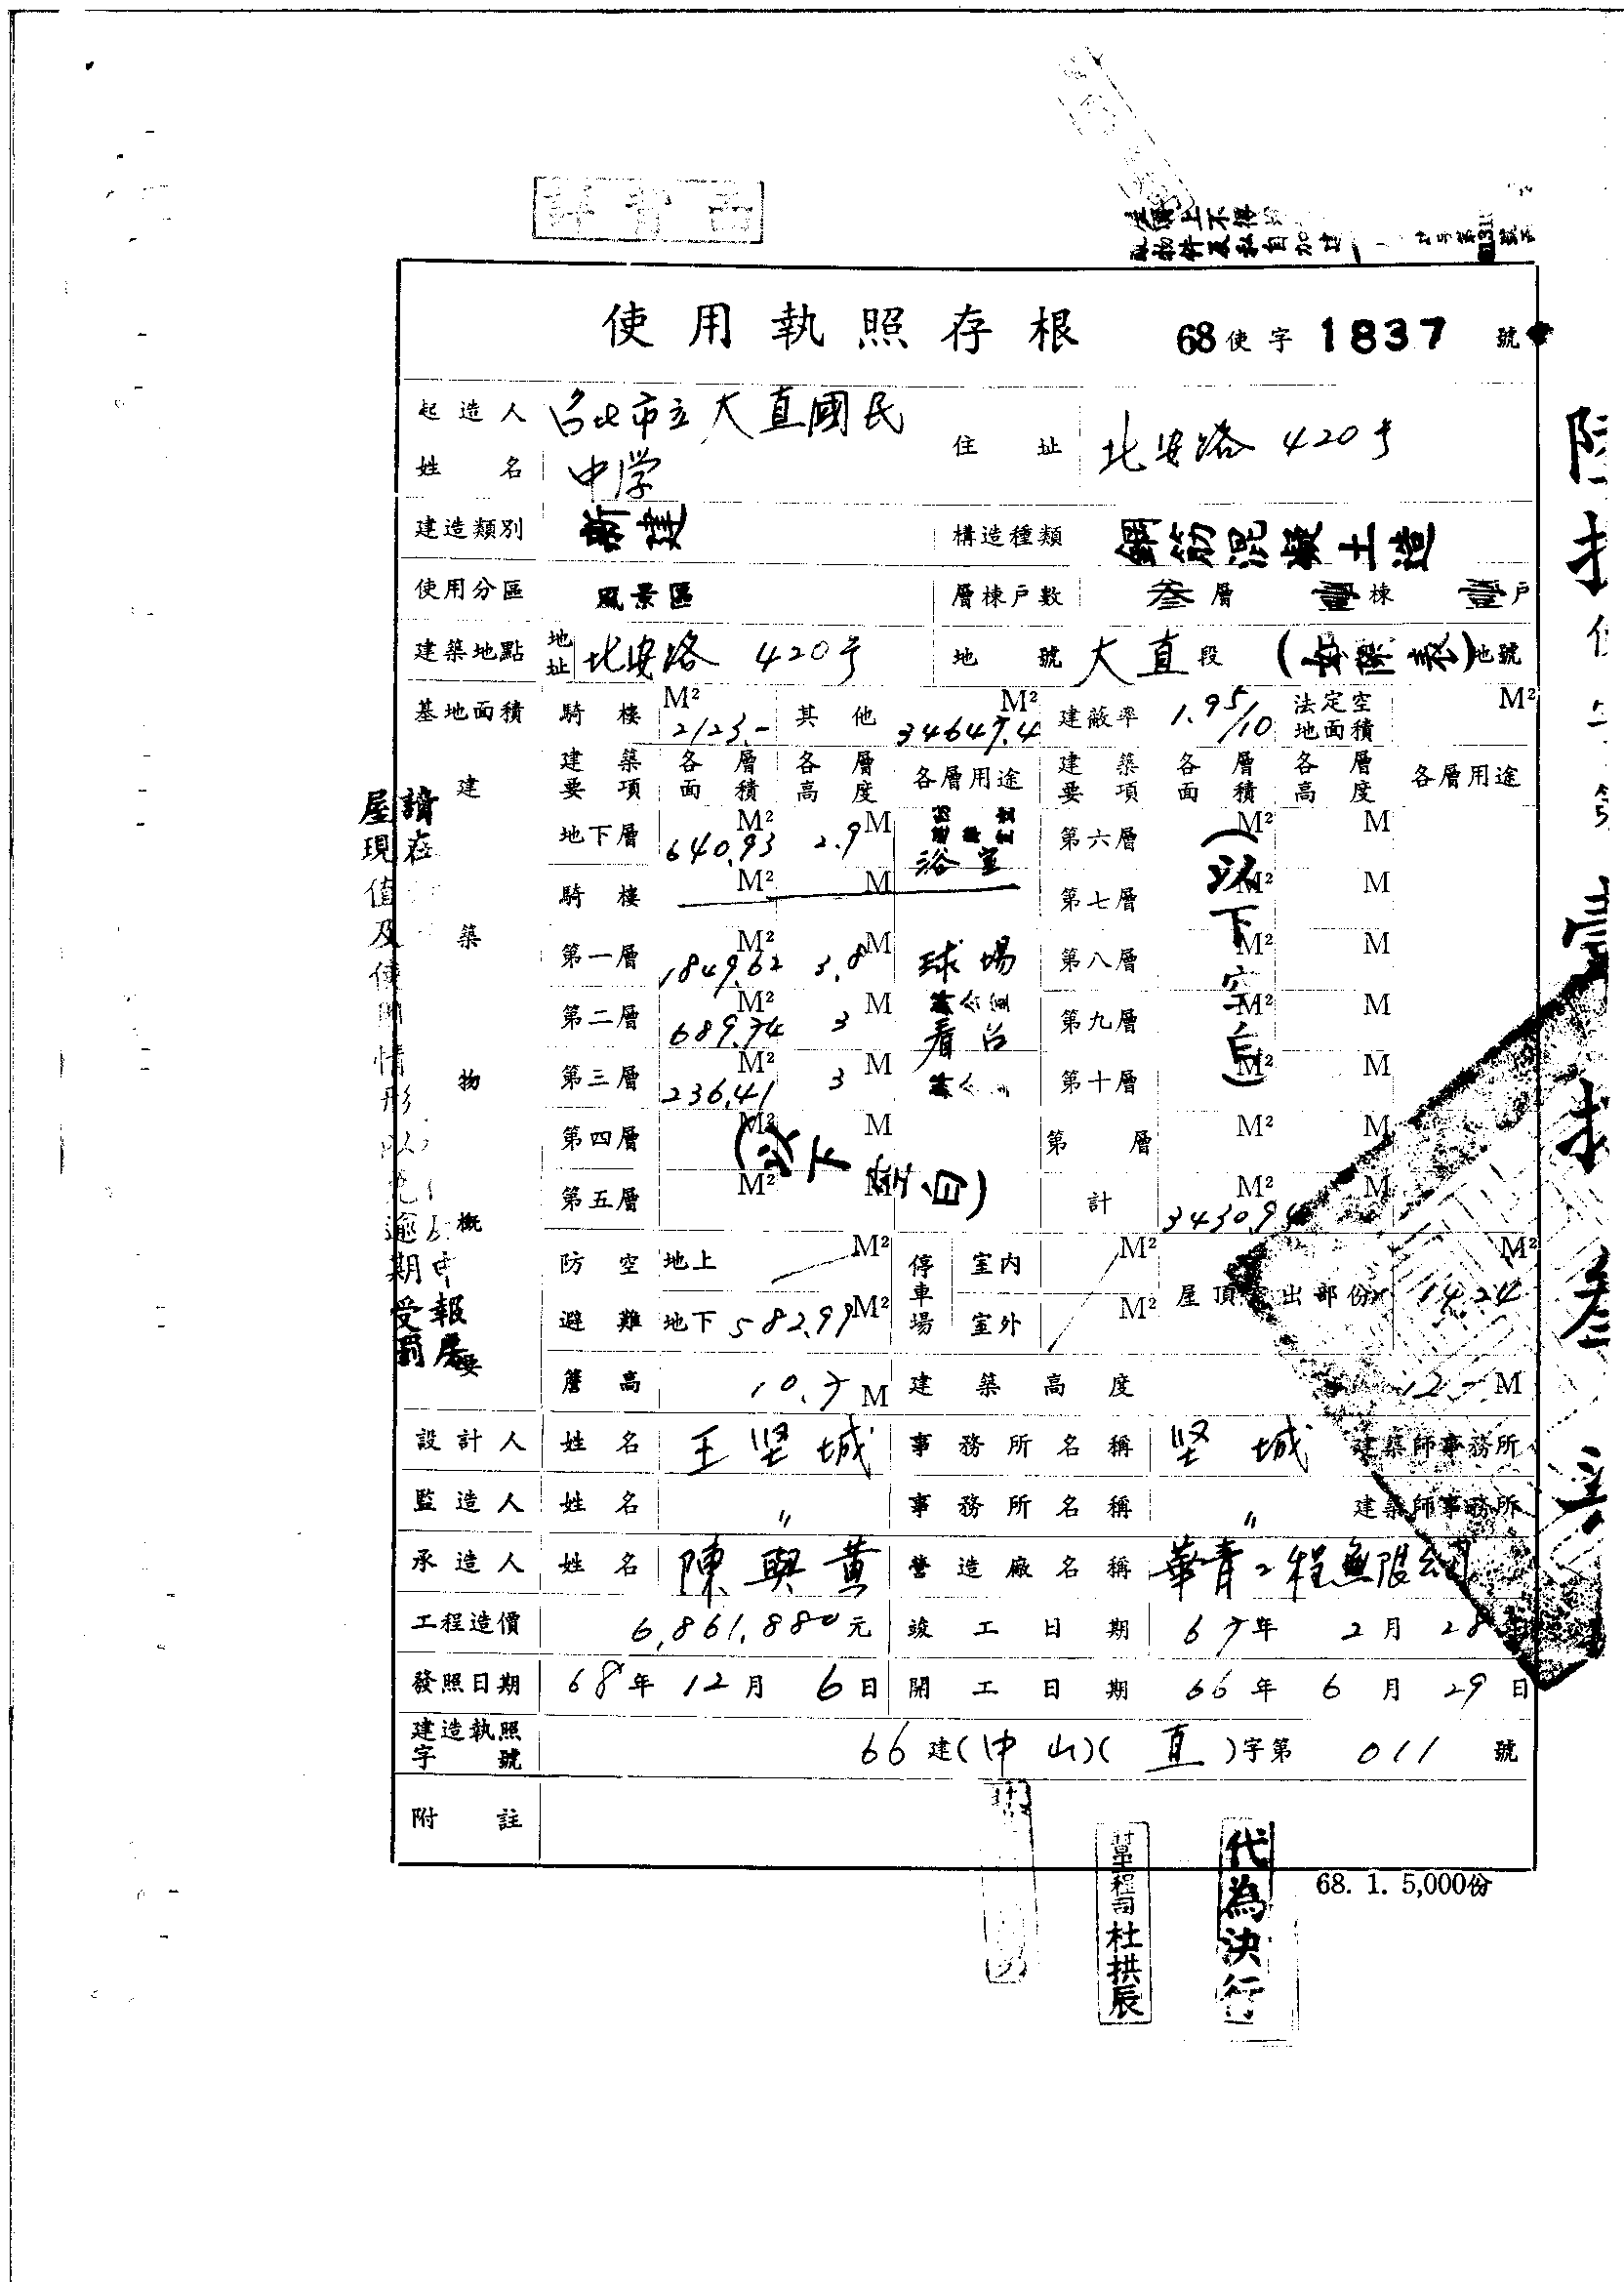 使用執照存根 68使字1837號
起造人姓名 台北市立大直國民中学 住址 北安路420号
建造類別 新建 構造種類 鋼筋混凝土造
使用分區 風景區 層棟戶數 叁層 壹棟 壹戶
建築地點 地址 北安路 420号 地號 大直段 (如附表)地號
基地面積 騎樓 M² 2123.- 其他 M² 34647.4 建蔽率 1.95/10 法定空地面積 M²
建築要項 各層面積 各層高度 各層用途 建築要項 各層面積 各層高度 各層用途
地下層 640.93 M² 2.9 M 浴室 第六層 M² M
騎樓 M² M 第七層 M² M
第一層 1849.62 M² 3.8 M 球場 第八層 M² M
第二層 689.74 M² 3 M 看台 第九層 M² M
第三層 236.41 M² 3 M 第十層 M² M
第四層 M² M 第 層 M² M
第五層 M² M 計 3430.94 M² M
(以下空白)
(以下空白)
建築物概要
防空避難 地上 M² 停車場 室內 M² 屋頂突出部份 14.24 M²
地下 582.99 M² 室外 M²
簷高 10.7 M 建築高度 12.- M
設計人 姓名 王坚城 事務所名稱 坚城 建築師事務所
監造人 姓名 〃 事務所名稱 〃 建築師事務所
承造人 姓名 陳興黄 營造廠名稱 華青工程無限公司
工程造價 6,861,880元 竣工日期 67年 2月 28日
發照日期 68年 12月 6日 開工日期 66年 6月 29日
建造執照字號 66建(中山)(直)字第 011 號
附註
68. 1. 5,000份
代為決行
工程司 杜拱辰